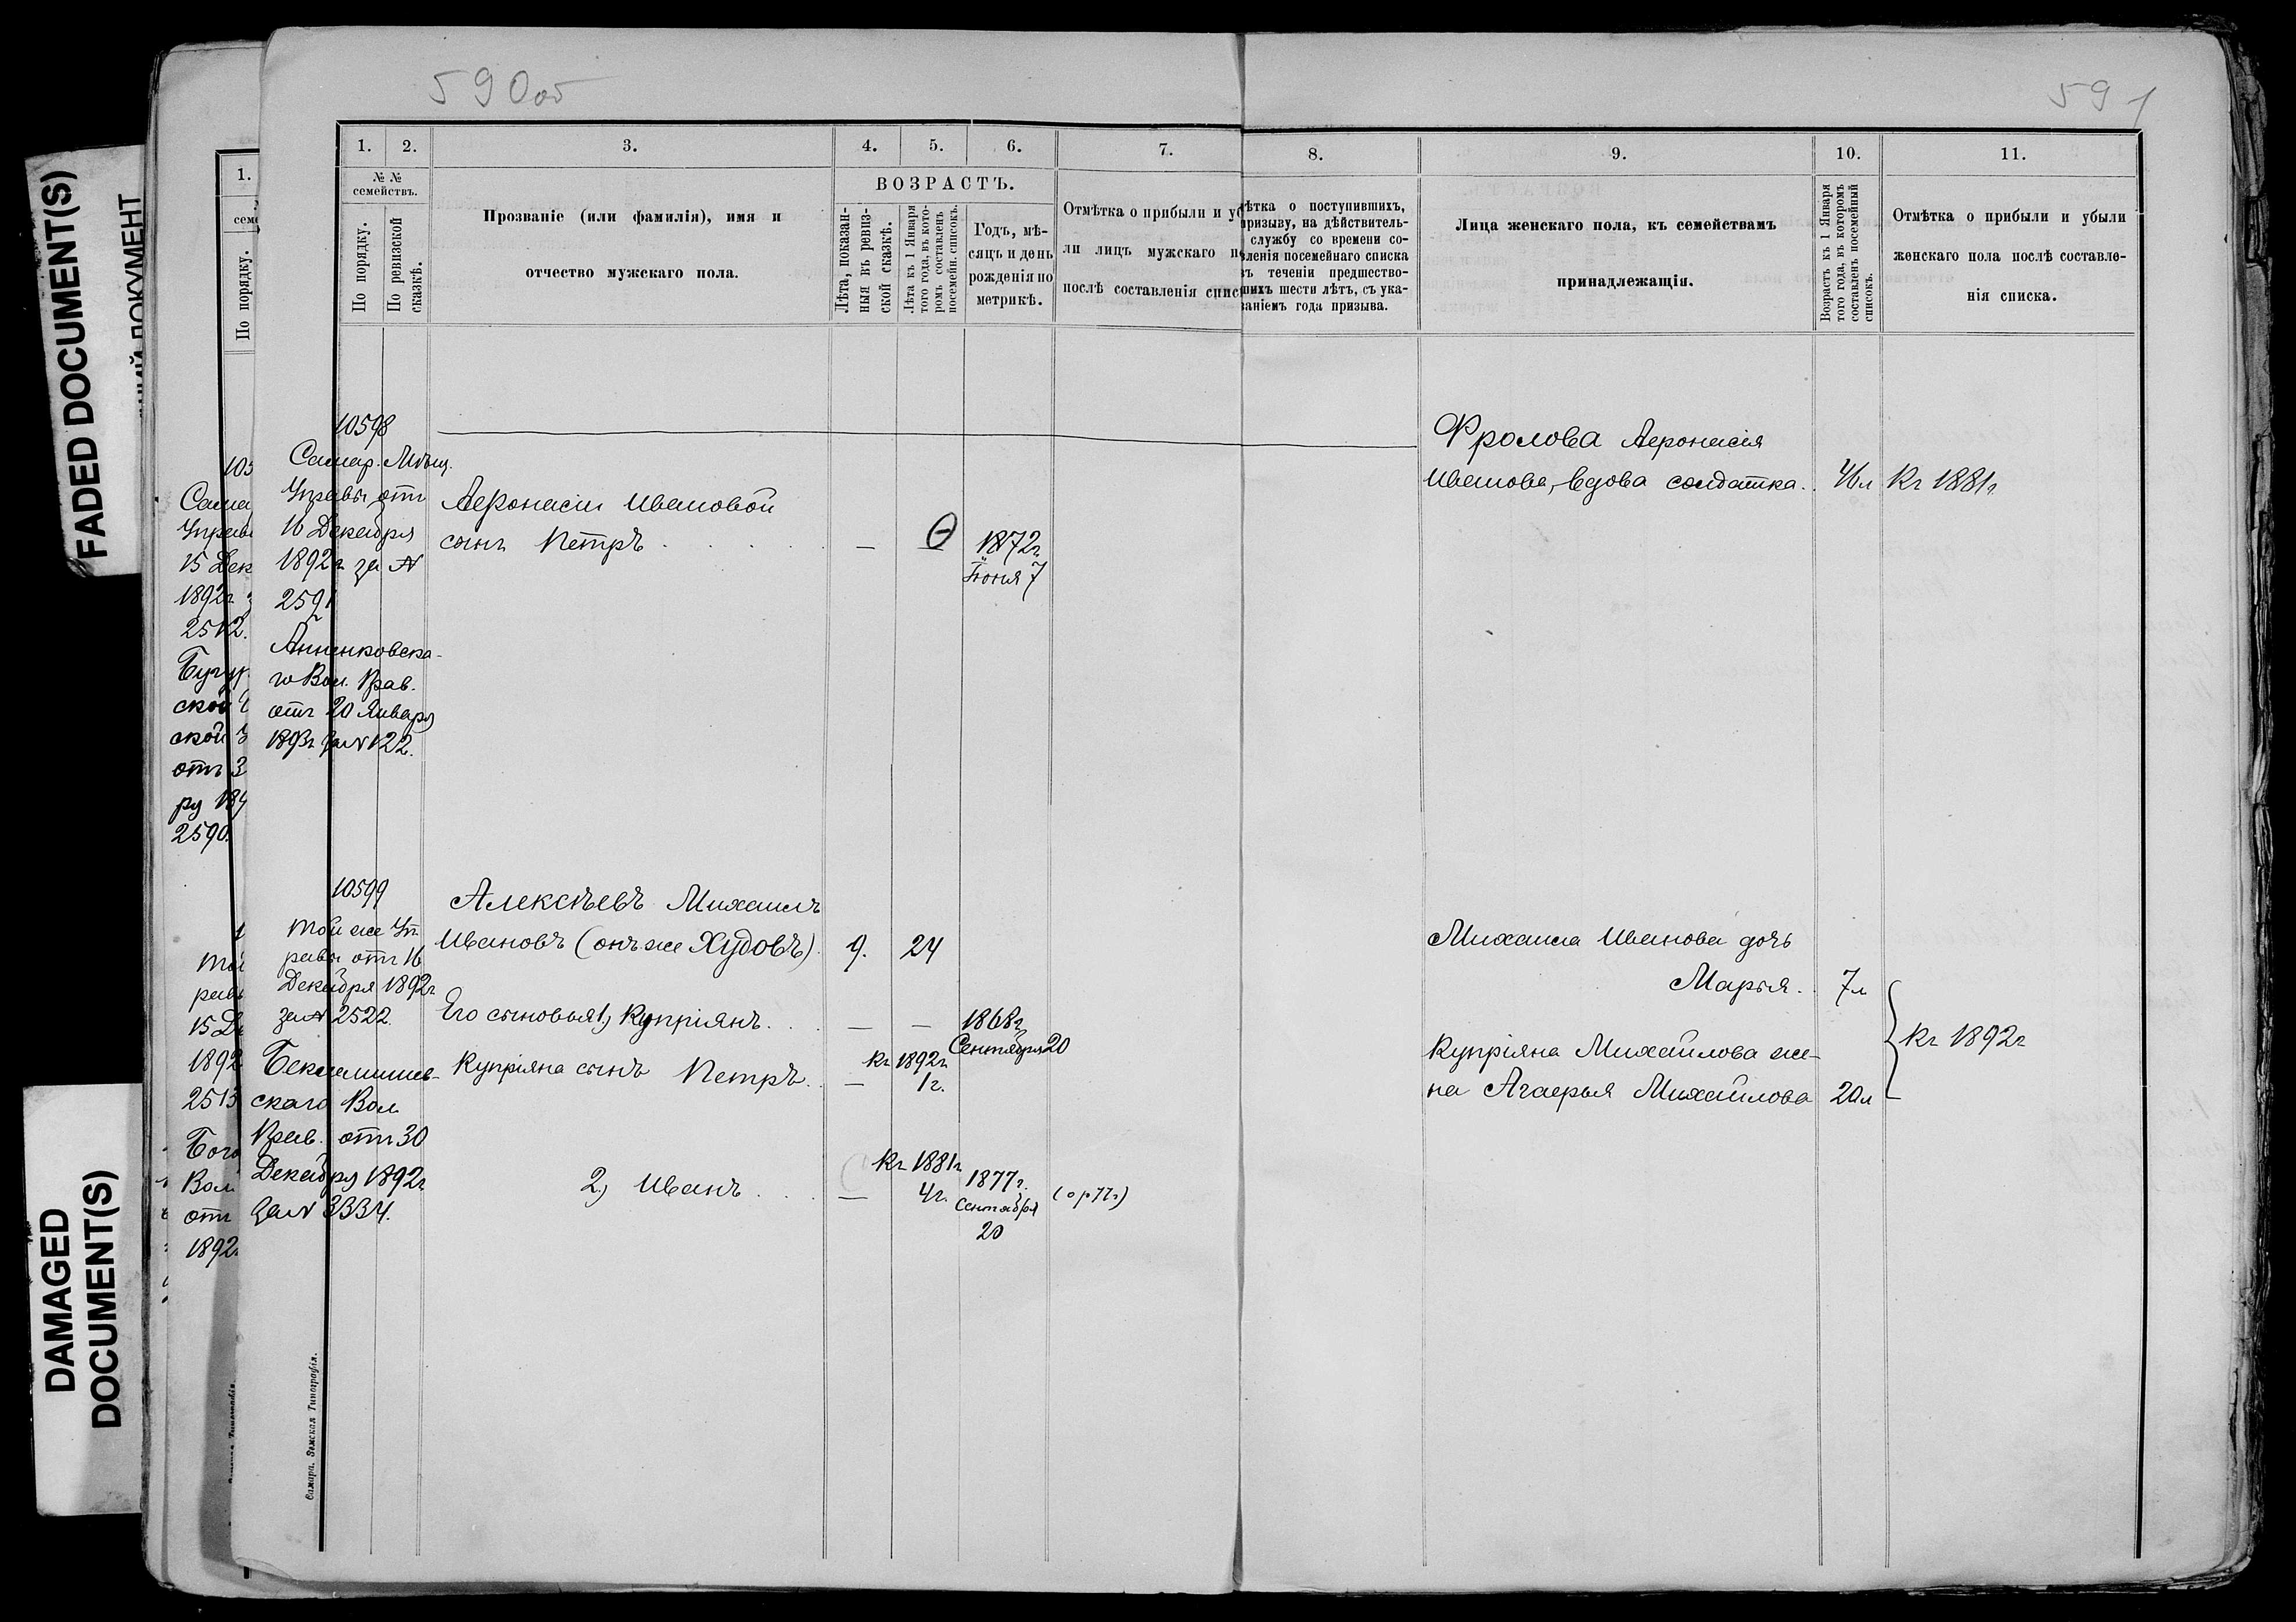 590об
591
FADED DOCUMENT(S)
DAMAGED
DOCUMENT(S)
1.
По порядку.
105
Сама
Управ
15 Дек
1892г. з
2512.
Бугур
ской
ской
отъ 3
ру 189
2590.
рав
15 Де
1892
2513
Бого
Вол
отъ
1892.
1. 2. 3. 4. 5. 6. 7.
№ №
семействъ.
По порядку.
По ревизской
сказкѣ.
Прозваніе (или фамилія), имя и
отчество мужскаго пола.
ВОЗРАСТЪ.
Лѣта, показан-
ныя въ ревиз-
ской сказкѣ.
Лѣта къ 1 Января
того года, въ кото-
ромъ составленъ
посемейн. списокъ.
Годъ, мѣ-
сяцъ и день
рожденія по
метрикѣ.
Отмѣтка о прибыли и уб
ли лицъ мужскаго по
послѣ составленія списк
8. 9. 10. 11.
ѣтка о поступившихъ,
призыву, на дѣйствитель-
службу со времени со-
вленія посемейнаго списка
въ теченіи предшество-
шихъ шести лѣтъ, съ ука-
заніемъ года призыва.
Лица женскаго пола, къ семействамъ
принадлежащія.
Возрастъ къ 1 Января
того года, въ которомъ
составленъ посемейный
списокъ.
Отмѣтка о прибыли и убыли
женскаго пола послѣ составле-
нія списка.
10598
Самар. Мѣщ.
Управы отъ
16 Декабря
1892г. за №
2591
Анненковска-
го Вол. Прав.
отъ 20 Января
1893г. за № 122.
Афонасіи Ивановой
сынъ Петръ — — 1872г.
Іюня 7
Фролова Афонасія
Иванова, вдова солдатка. 46л Къ 1881г.
10599
Той же Уп
равы отъ 16
Декабря 1892г
за № 2522.
Беклемишев-
скаго Вол.
Прав. отъ 30
Декабря 1892г
за № 3334.
Алексѣевъ Михаилъ
Ивановъ (онъ же Худовъ). 9. 24
Его сыновья 1, Купріянъ — — 1868г.
Сентября 20
Къ 1892г.
Купріяна сынъ Петръ — 1г.
Къ 1881г.
2, Иванъ — 4г. 1877г.
Сентября
20
Михаила Иванова дочь
Марья. 7л
Купріяна Михайлова же-
на Агафья Михайлова 20л
Къ 1892г
Самара. Земская Типографія.